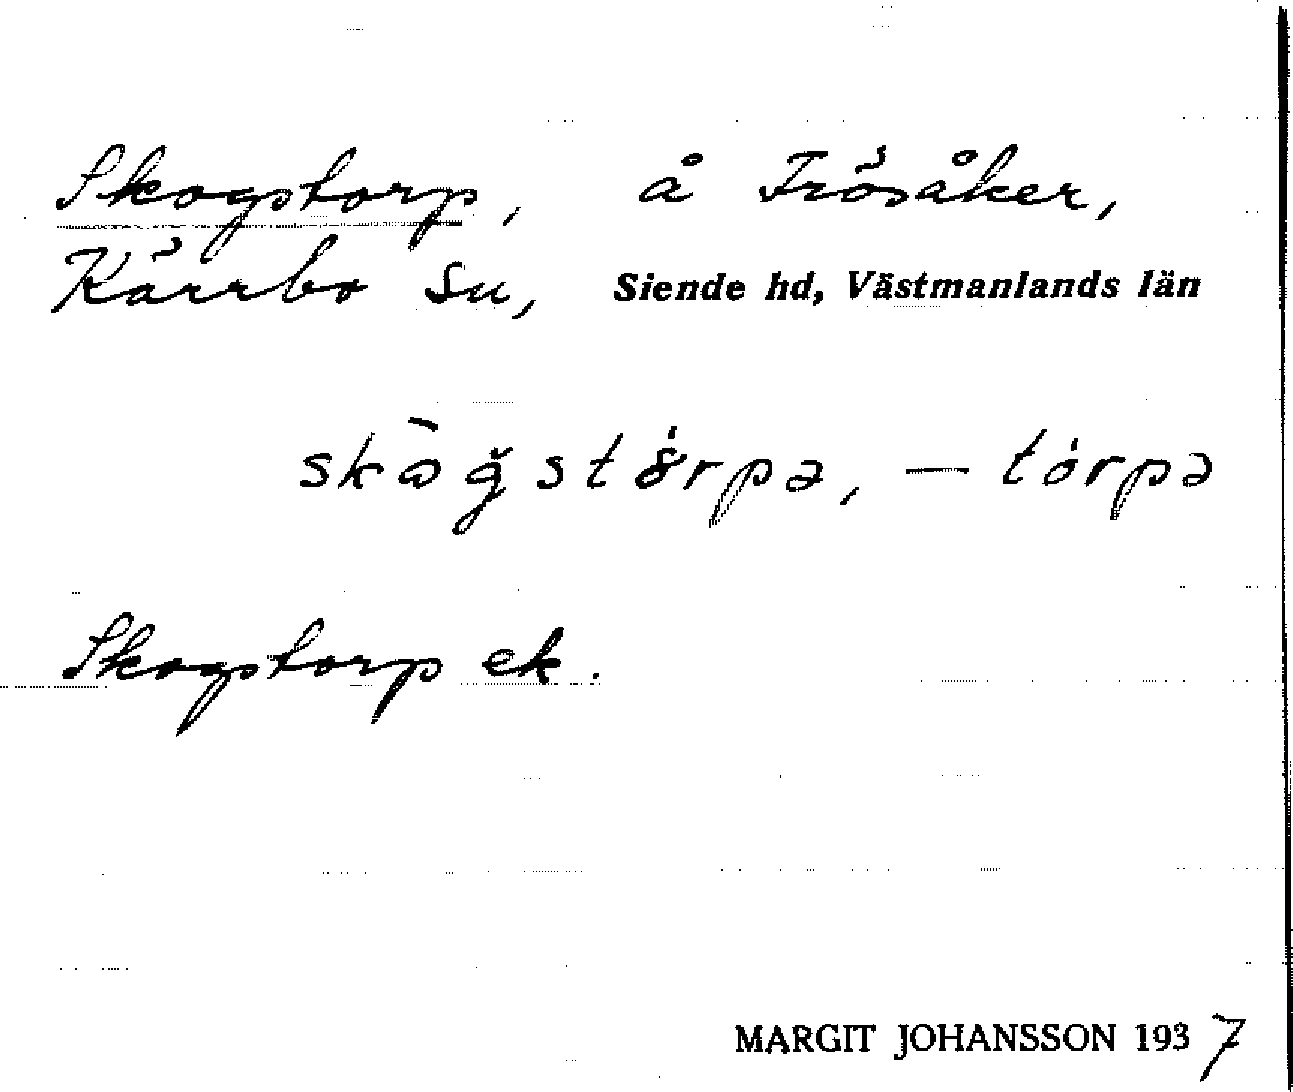 Skogstorp, å Frösåker,
Kärrbo sn, Siende hd, Västmanlands län
skògstórpa, – tórpa
Skogstorp ek.
MARGIT JOHANSSON 1937